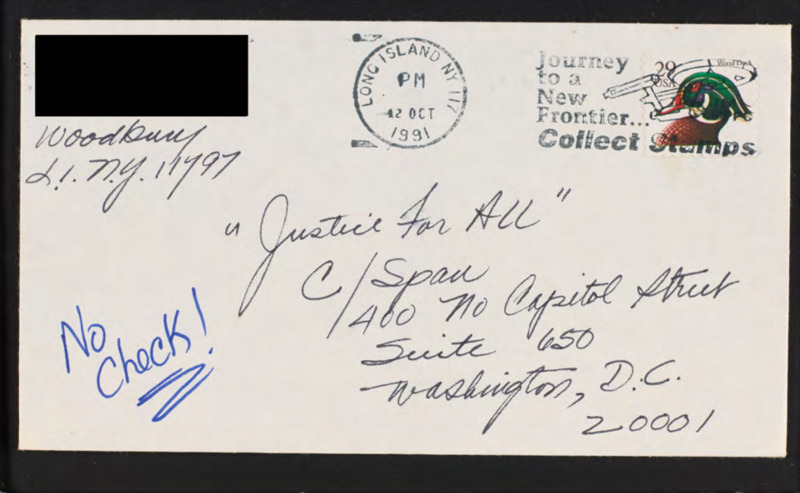 Woodbury
L.I. N.Y. 11797
LONG ISLAND NY 117
PM
12 OCT
1991
Journey
to a
New
Frontier...
Collect Stamps
29
USA
Wood Duck
"Justice For All"
C/Span
400 No Capitol Street
Suite 650
Washington, D.C.
20001
No
Check!